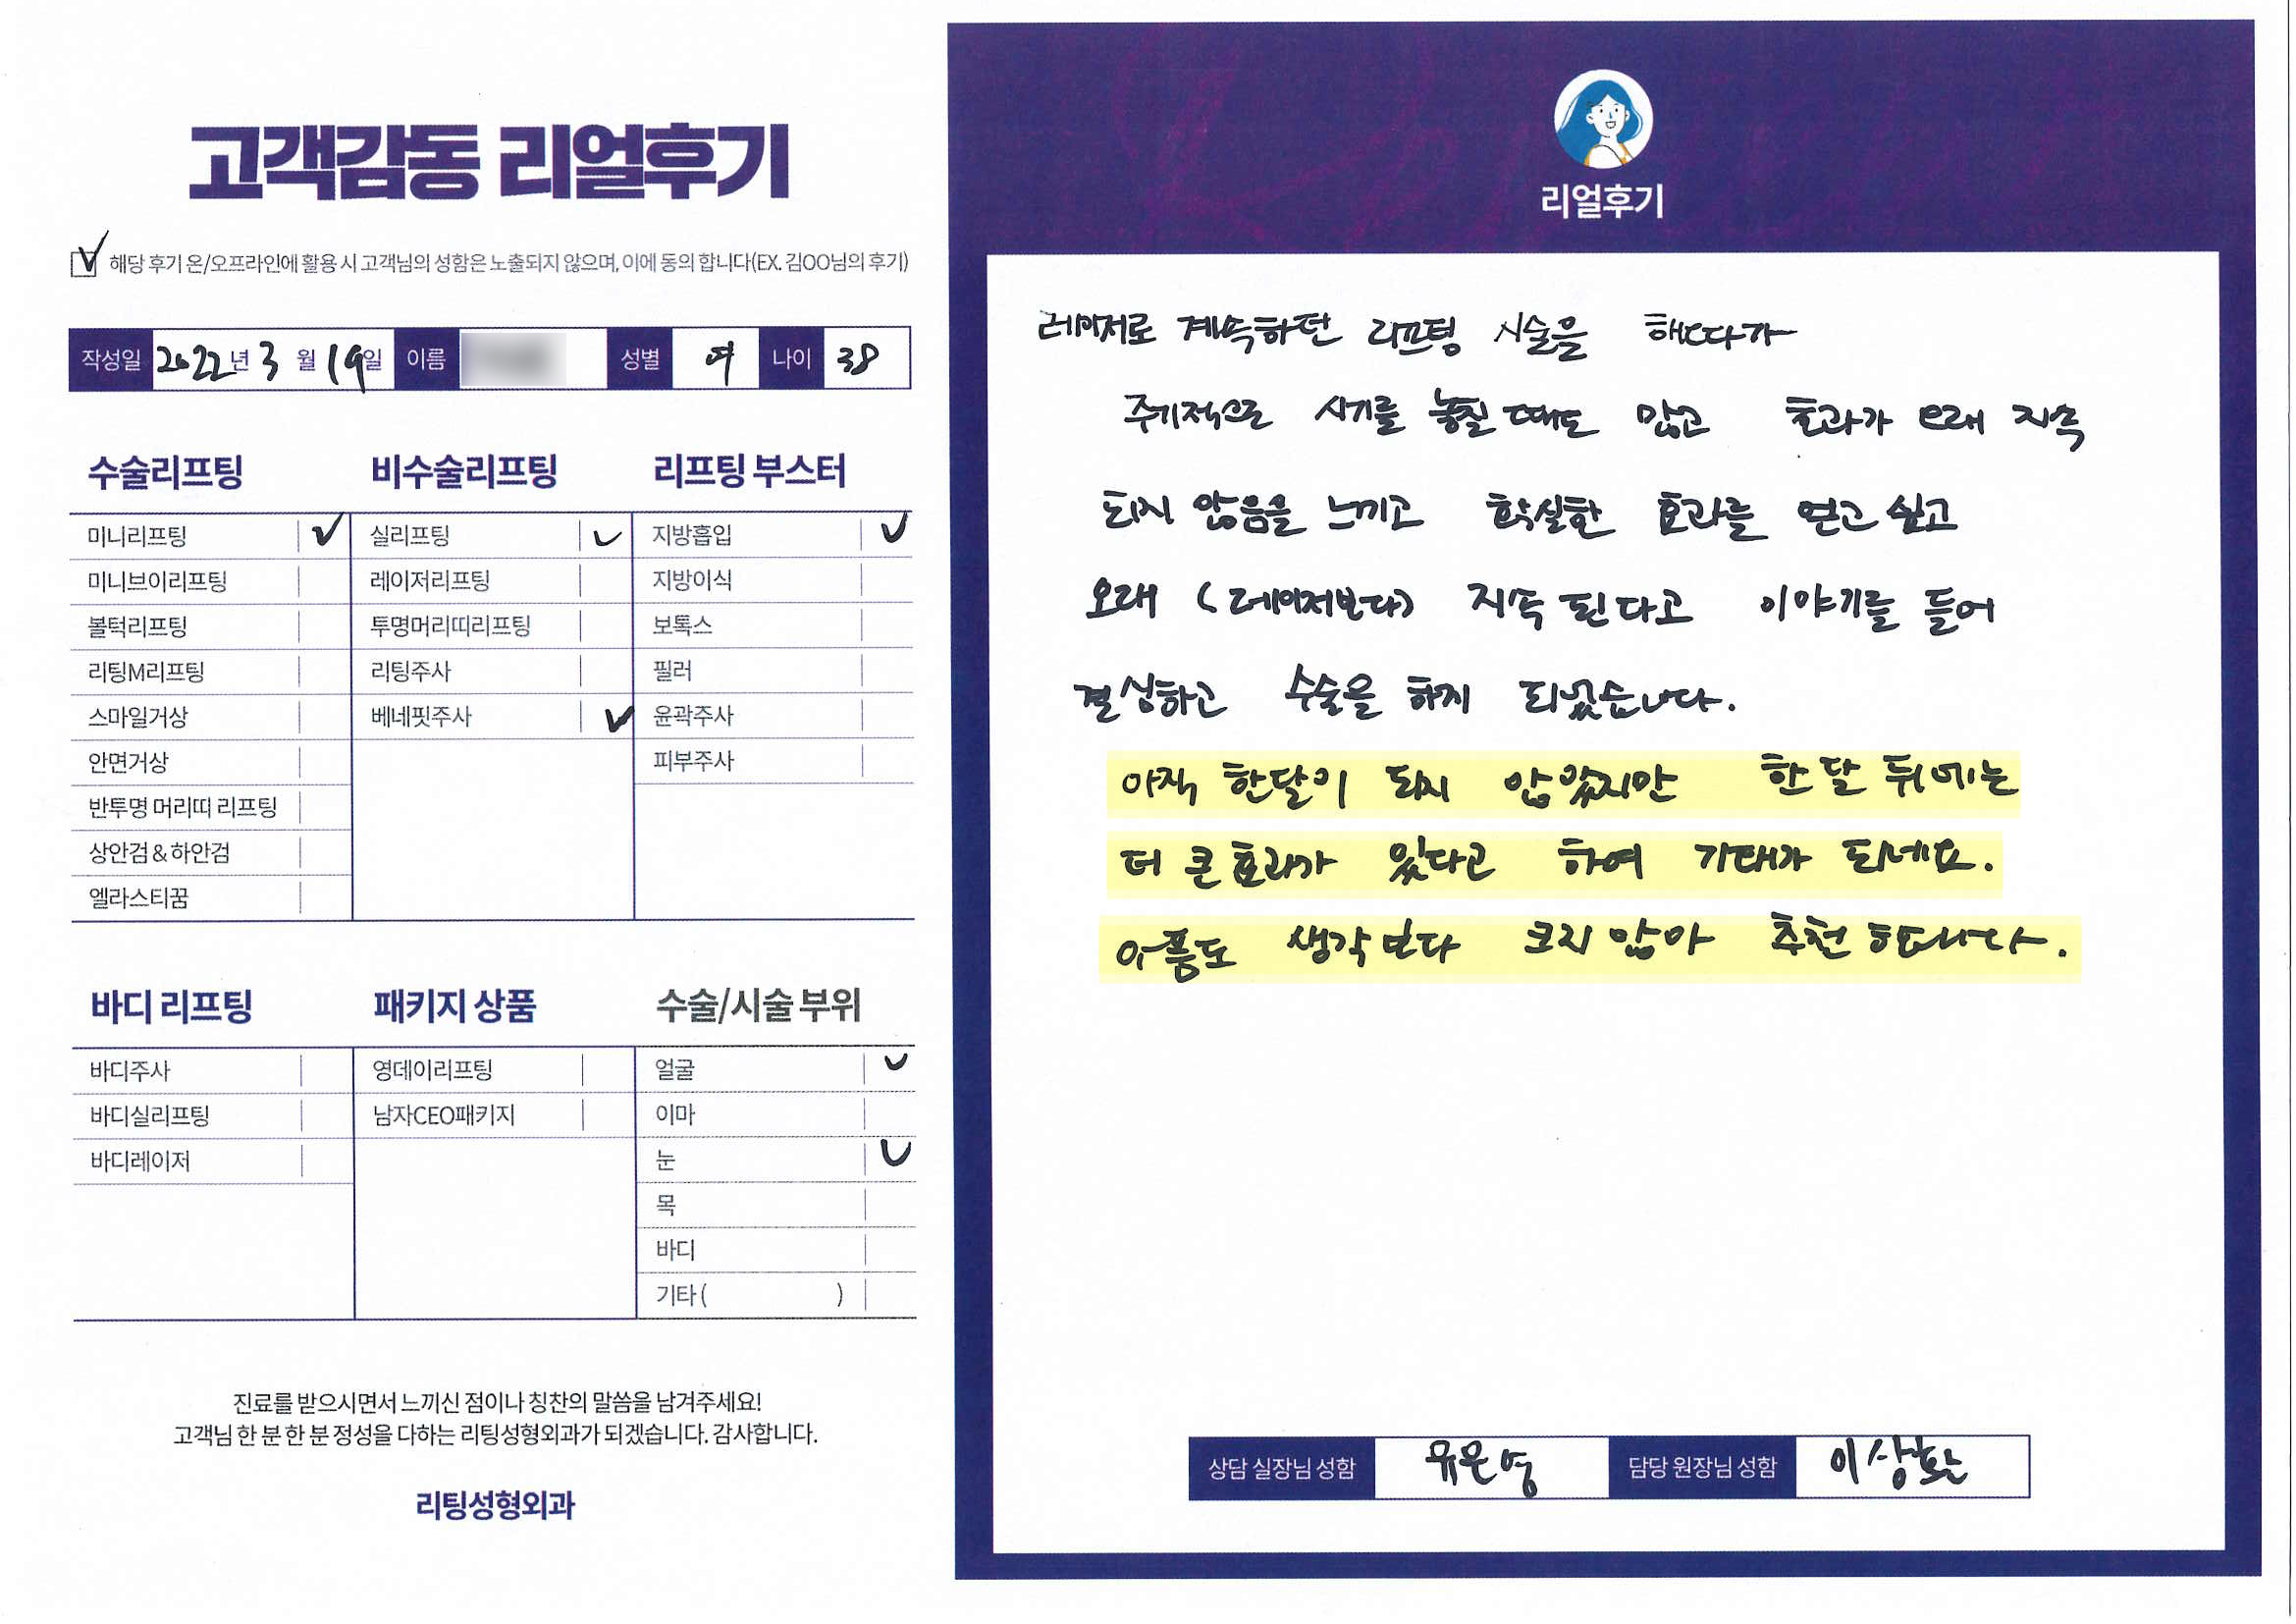 고객감동 리얼후기
해당 후기 온/오프라인에 활용 시 고객님의 성함은 노출되지 않으며, 이에 동의 합니다(EX. 김OO님의 후기)
작성일 2022년 3월 19일 이름 성별 여 나이 38
수술리프팅
미니리프팅
미니브이리프팅
볼턱리프팅
리팅M리프팅
스마일거상
안면거상
반투명 머리띠 리프팅
상안검&하안검
엘라스티꿈
비수술리프팅
실리프팅
레이저리프팅
투명머리띠리프팅
리팅주사
베네핏주사
리프팅 부스터
지방흡입
지방이식
보톡스
필러
윤곽주사
피부주사
바디 리프팅
바디주사
바디실리프팅
바디레이저
패키지 상품
영데이리프팅
남자CEO패키지
수술/시술 부위
얼굴
이마
눈
목
바디
기타( )
진료를 받으시면서 느끼신 점이나 칭찬의 말씀을 남겨주세요!
고객님 한 분 한 분 정성을 다하는 리팅성형외과가 되겠습니다. 감사합니다.
리팅성형외과
리얼후기
레이저로 계속하던 리프팅 시술을 해따가
주기적으로 시기를 놓칠 때도 많고 효과가 오래 지속
되지 않음을 느끼고 확실한 효과를 얻고 싶고
오래 (레이저보다) 지속 된다고 이야기를 들어
결심하고 수술을 하게 되었습니다.
아직 한달이 되지 않았지만 한 달 뒤에는
더 큰 효과가 있다고 하여 기대가 되네요.
아픔도 생각보다 크지 않아 추천 합니다.
상담 실장님 성함 유은영 담당 원장님 성함 이상환